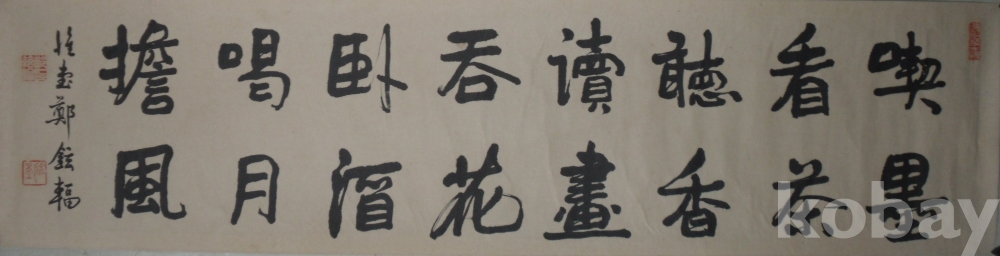 喫墨
看茶
聽香
讀畫
吞花
臥酒
喝月
擔風
惟堂鄭鉉輻
kobay